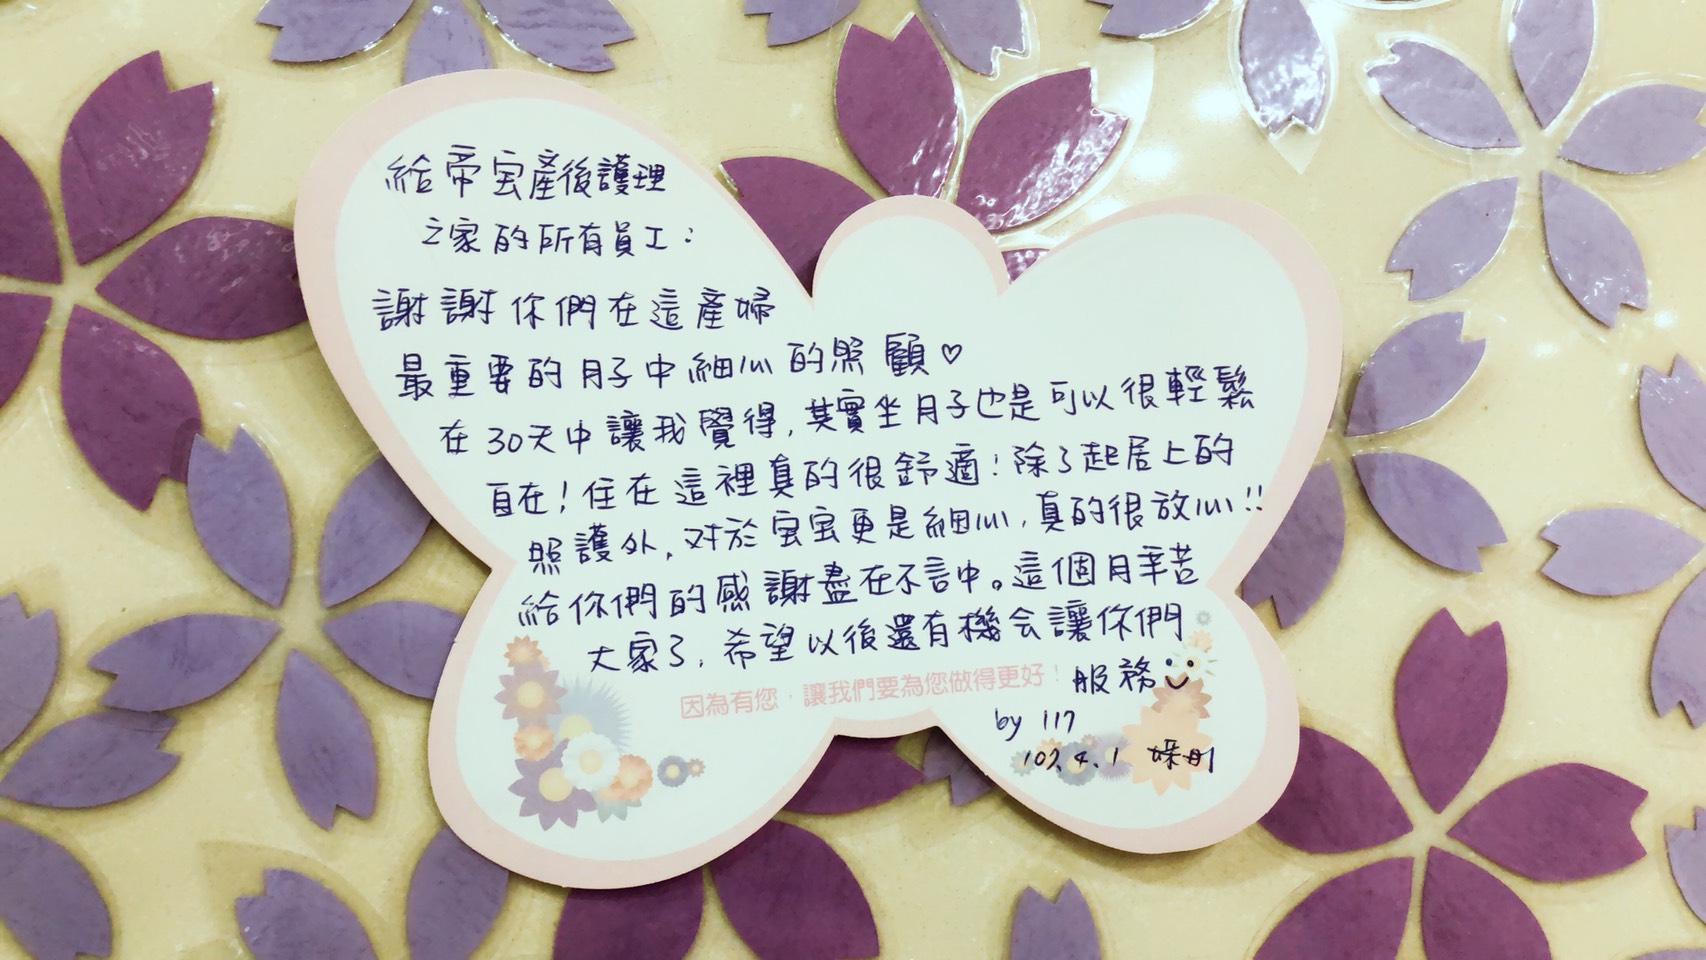 給帝宝產後護理
之家的所有員工：
謝謝你們在這產婦
最重要的月子中細心的照顧♡
在30天中讓我覺得，其實坐月子也是可以很輕鬆
自在！住在這裡真的很舒適！除了起居上的
照護外，对於宝宝更是細心，真的很放心!!
給你們的感謝盡在不言中。這個月辛苦
大家了，希望以後還有機会讓你們
服務
因為有您，讓我們要為您做得更好！
by 117
107.4.1